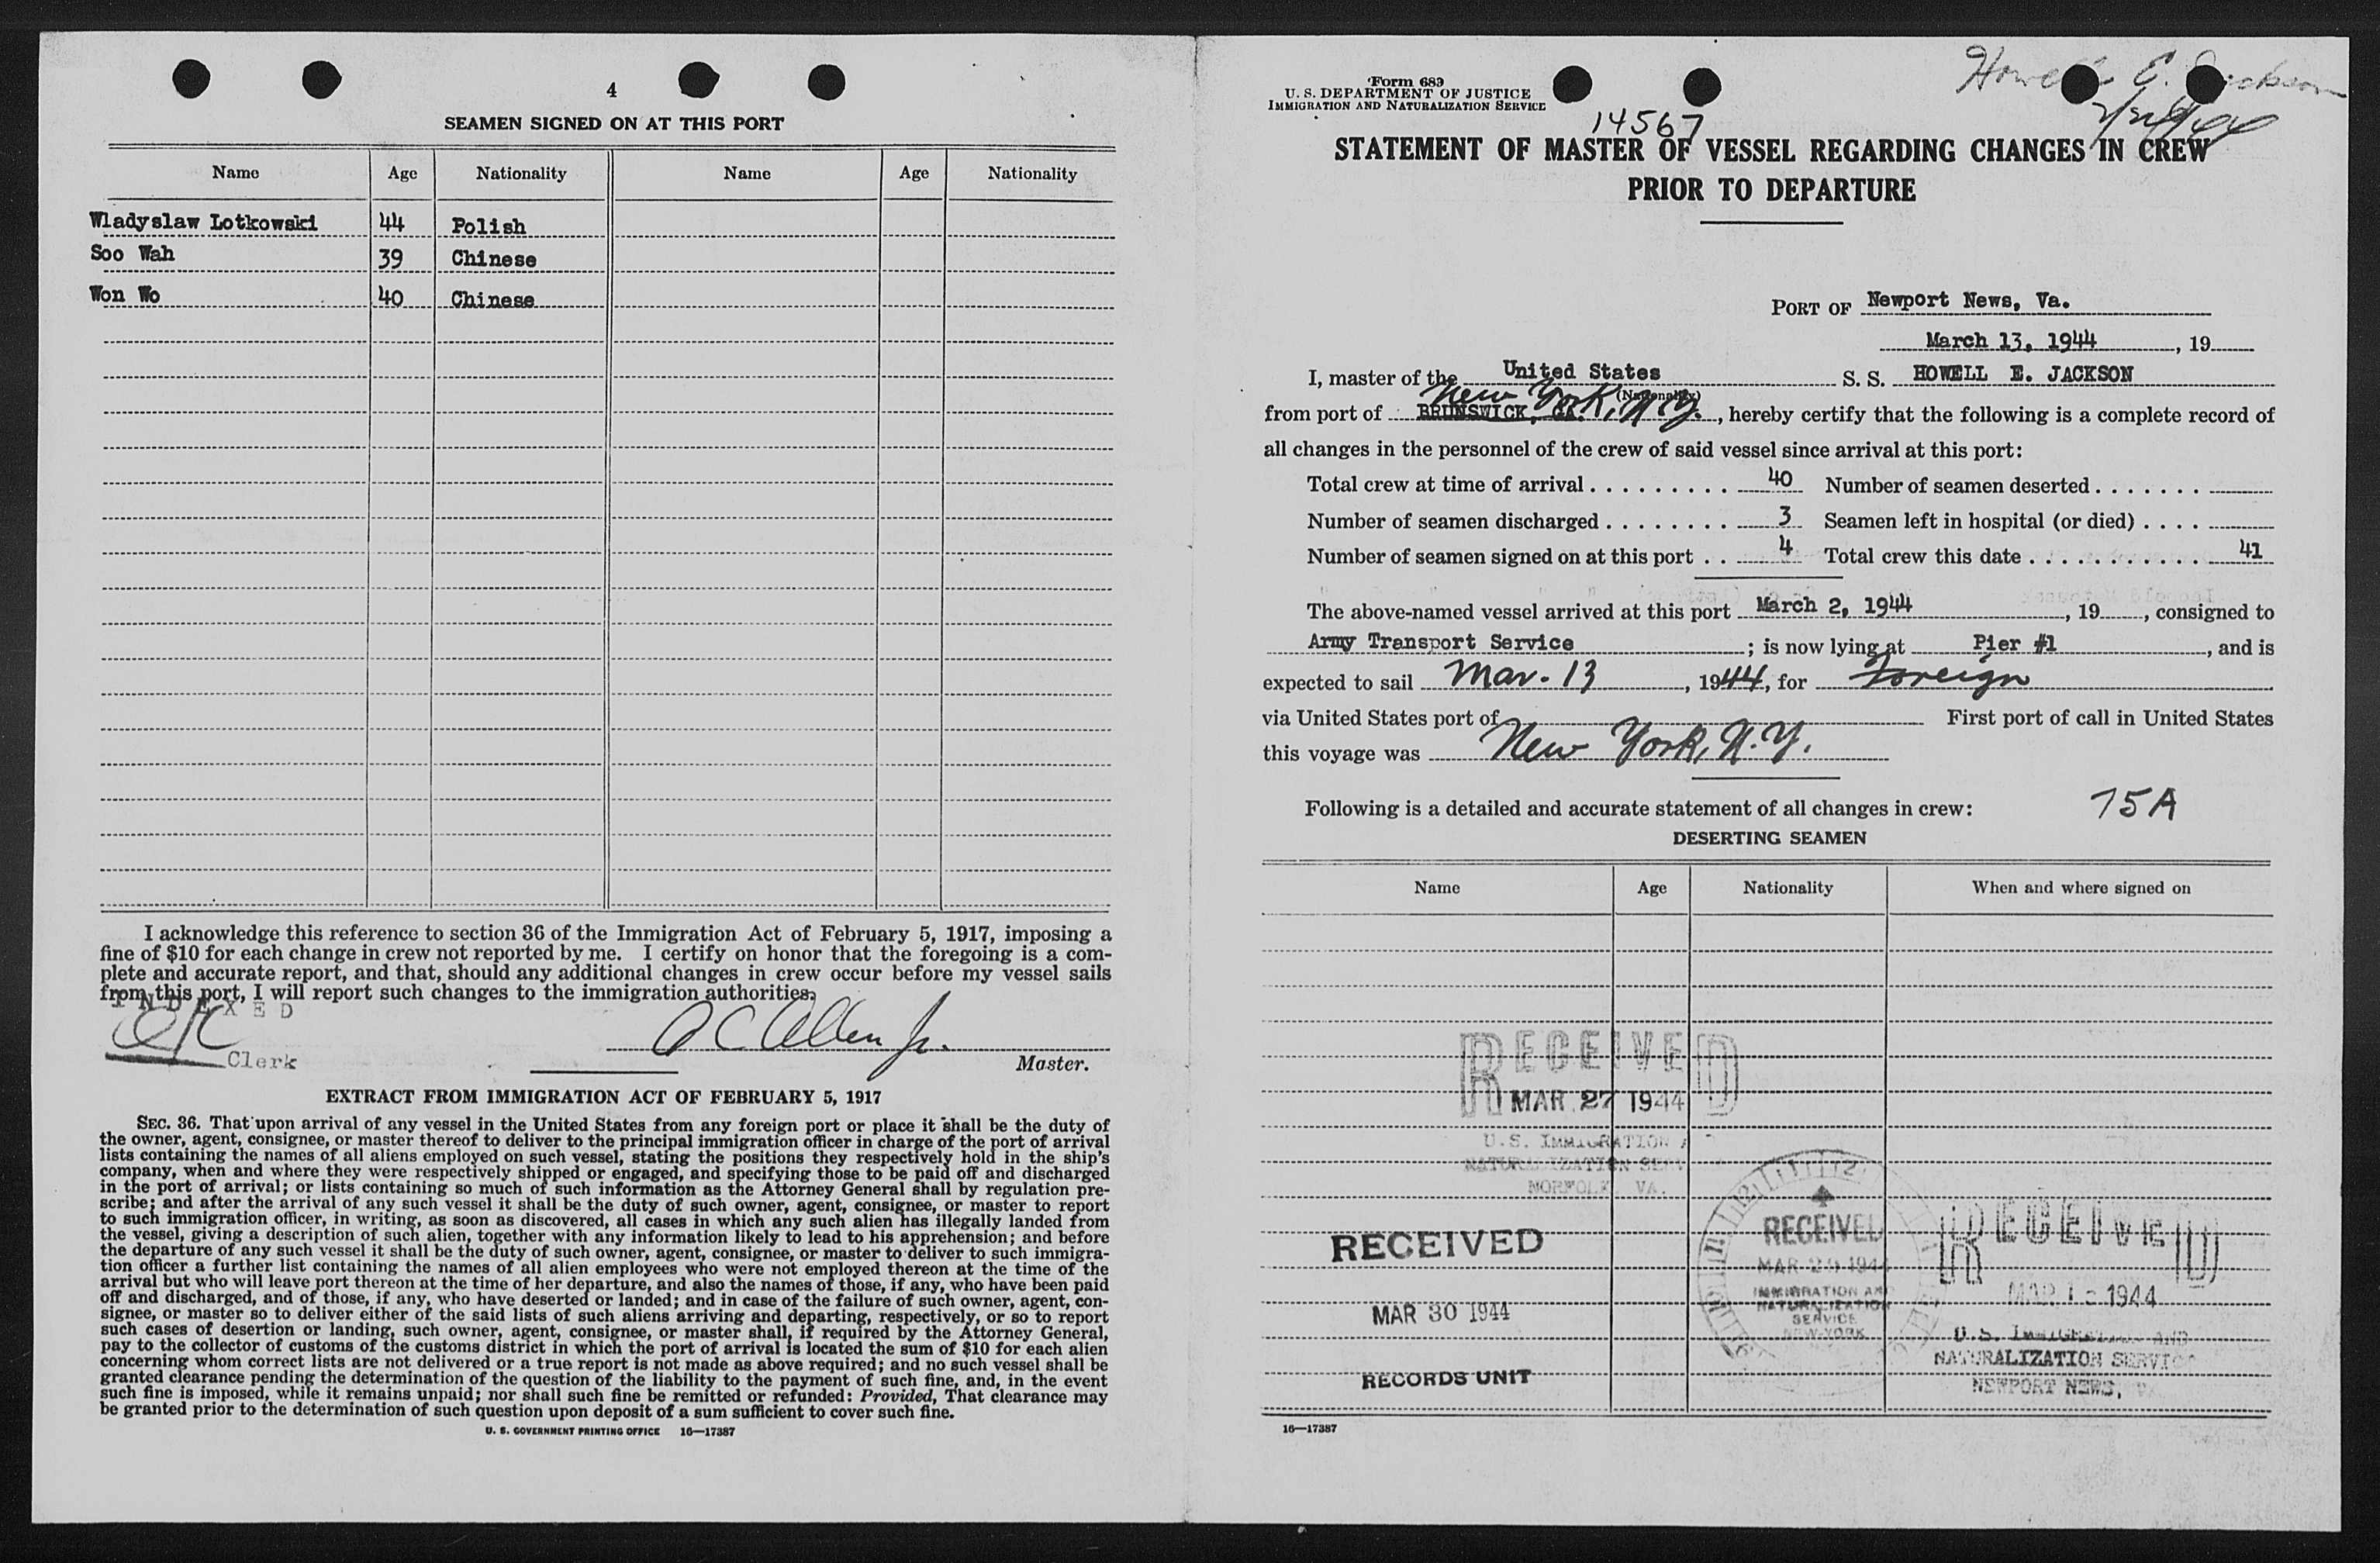 4
SEAMEN SIGNED ON AT THIS PORT
Name Age Nationality Name Age Nationality
Wladyslaw Lotkowski 44 Polish
Soo Wah 39 Chinese
Won Wo 40 Chinese
I acknowledge this reference to section 36 of the Immigration Act of February 5, 1917, imposing a
fine of $10 for each change in crew not reported by me. I certify on honor that the foregoing is a com-
plete and accurate report, and that, should any additional changes in crew occur before my vessel sails
from this port, I will report such changes to the immigration authorities.
INDEXED
Clerk
Allen Jr.
Master.
EXTRACT FROM IMMIGRATION ACT OF FEBRUARY 5, 1917
SEC. 36. That upon arrival of any vessel in the United States from any foreign port or place it shall be the duty of
the owner, agent, consignee, or master thereof to deliver to the principal immigration officer in charge of the port of arrival
lists containing the names of all aliens employed on such vessel, stating the positions they respectively hold in the ship's
company, when and where they were respectively shipped or engaged, and specifying those to be paid off and discharged
in the port of arrival; or lists containing so much of such information as the Attorney General shall by regulation pre-
scribe; and after the arrival of any such vessel it shall be the duty of such owner, agent, consignee, or master to report
to such immigration officer, in writing, as soon as discovered, all cases in which any such alien has illegally landed from
the vessel, giving a description of such alien, together with any information likely to lead to his apprehension; and before
the departure of any such vessel it shall be the duty of such owner, agent, consignee, or master to deliver to such immigra-
tion officer a further list containing the names of all alien employees who were not employed thereon at the time of the
arrival but who will leave port thereon at the time of her departure, and also the names of those, if any, who have been paid
off and discharged, and of those, if any, who have deserted or landed; and in case of the failure of such owner, agent, con-
signee, or master so to deliver either of the said lists of such aliens arriving and departing, respectively, or so to report
such cases of desertion or landing, such owner, agent, consignee, or master shall, if required by the Attorney General,
pay to the collector of customs of the customs district in which the port of arrival is located the sum of $10 for each alien
concerning whom correct lists are not delivered or a true report is not made as above required; and no such vessel shall be
granted clearance pending the determination of the question of the liability to the payment of such fine, and, in the event
such fine is imposed, while it remains unpaid; nor shall such fine be remitted or refunded: Provided, That clearance may
be granted prior to the determination of such question upon deposit of a sum sufficient to cover such fine.
U. S. GOVERNMENT PRINTING OFFICE 16—17387
Form 689
U. S. DEPARTMENT OF JUSTICE
IMMIGRATION AND NATURALIZATION SERVICE
Howell E. Jackson
14567
STATEMENT OF MASTER OF VESSEL REGARDING CHANGES IN CREW
PRIOR TO DEPARTURE
PORT OF Newport News, Va.
March 13, 1944, 19
I, master of the United States S. S. HOWELL E. JACKSON
(Nationality)
from port of BRUNSWICK, GA. New York, N.Y., hereby certify that the following is a complete record of
all changes in the personnel of the crew of said vessel since arrival at this port:
Total crew at time of arrival 40 Number of seamen deserted
Number of seamen discharged 3 Seamen left in hospital (or died)
Number of seamen signed on at this port 4 Total crew this date 41
The above-named vessel arrived at this port March 2, 1944, 19, consigned to
Army Transport Service; is now lying at Pier #1, and is
expected to sail Mar. 13, 1944, for Foreign
via United States port of First port of call in United States
this voyage was New York, N.Y.
Following is a detailed and accurate statement of all changes in crew: 75A
DESERTING SEAMEN
Name Age Nationality When and where signed on
RECEIVED
MAR 27 1944
U.S. IMMIGRATION
NATURALIZATION
NORFOLK, VA.
RECEIVED
MAR 30 1944
RECORDS UNIT
RECEIVED
MAR 1944
IMMIGRATION AND
NATURALIZATION
SERVICE
NEW YORK
RECEIVED
MAR 1944
U. S. IMMIGRATION AND
NATURALIZATION SERVICE
NEWPORT NEWS,
16—17387